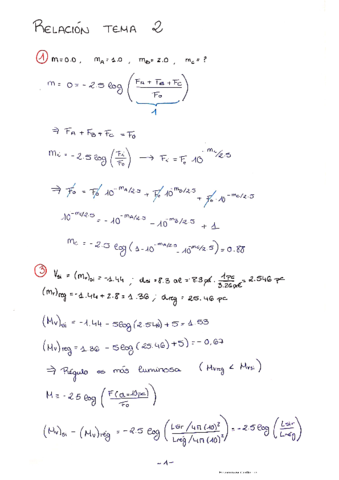 RELACIÓN TEMA 2
① m=0.0, m_A=1.0, m_B=2.0, m_C=?
m = 0 = -2.5 log ( (F_A + F_B + F_C) / F_0 )
1
⇒ F_A + F_B + F_C = F_0
m_i = -2.5 log (F_i / F_0) → F_i = F_0 10^(-m_i/2.5)
⇒ F_0 = F_0 10^(-m_A/2.5) + F_0 10^(-m_B/2.5) + F_0 10^(-m_C/2.5)
10^(-m_C/2.5) = -10^(-m_A/2.5) - 10^(-m_B/2.5) + 1
m_C = -2.5 log (1 - 10^(-m_A/2.5) - 10^(-m_B/2.5)) = 0.88
③ V_si = (m_v)_si = -1.44 ; d_si = 8.3 al = 8.3 al · 1pc / 3.26 al = 2.546 pc
(m_v)_reg = -1.44 + 2.8 = 1.36 ; d_reg = 25.46 pc
(M_v)_si = -1.44 - 5 log (2.546) + 5 = 1.53
(M_v)_reg = 1.36 - 5 log (25.46) + 5 = -0,67
⇒ Régulo es más luminosa (M_reg < M_si)
M = -2.5 log ( F(d=10pc) / F_0 )
(M_v)_si - (M_v)_rég = -2.5 log ( (L_sir / 4π(10)²) / (L_rég / 4π(10)²) ) = -2.5 log (L_sir / L_rég)
-1-